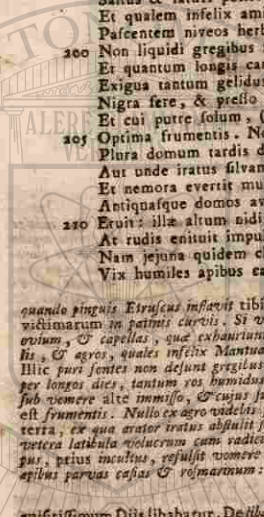 Et qualem infelix ami
Pascentem niveos herb
200 Non liquidi gregibus f
Et quantum longis car
Exigua tantum gelidus
Nigra fere, & presso
Et cui putre solum, (
205 Optima frumentis. No
Plura domum tardis d
Aut unde iratus silvam
Et nemora evertit mu
Antiquasque domos av
210 Eruit: illæ altum nidi
At rudis enituit impul
Nam jejuna quidem cl
Vix humiles apibus ca
quando pinguis Etruscus inflavit tibi
victimarum in patinis curvis. Si v
ovium, & capellas, quæ exhauriunt
lis, & agros, quales infelix Mantua
Illic puri fontes non desunt gregibus
per longos dies, tantum ros humidus
sub vomere alte immisso, & cujus
est frumentis. Nullo ex agro videbis
terra, ex qua arator iratus abstulit
vetera latibula volucrum cum radici
pus, prius incultus, refulsit vomere
apibus parvas casias & rosmarinum:
Diis libabatur. De